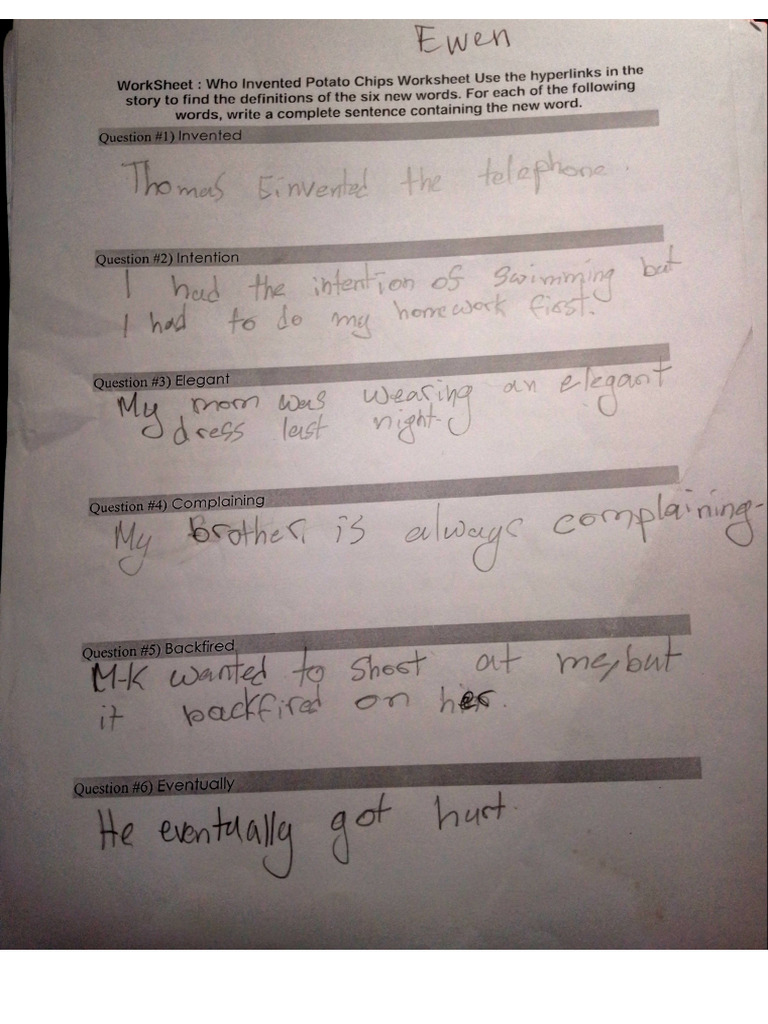 Ewen
WorkSheet : Who Invented Potato Chips Worksheet Use the hyperlinks in the
story to find the definitions of the six new words. For each of the following
words, write a complete sentence containing the new word.
Question #1) Invented
Thomas E invented the telephone.
Question #2) Intention
I had the intention of swimming but
I had to do my homework first.
Question #3) Elegant
My mom was wearing an elegant
dress last night.
Question #4) Complaining
My Brother is always complaining.
Question #5) Backfired
M-K wanted to shoot at me, but
it backfired on her.
Question #6) Eventually
He eventually got hurt.